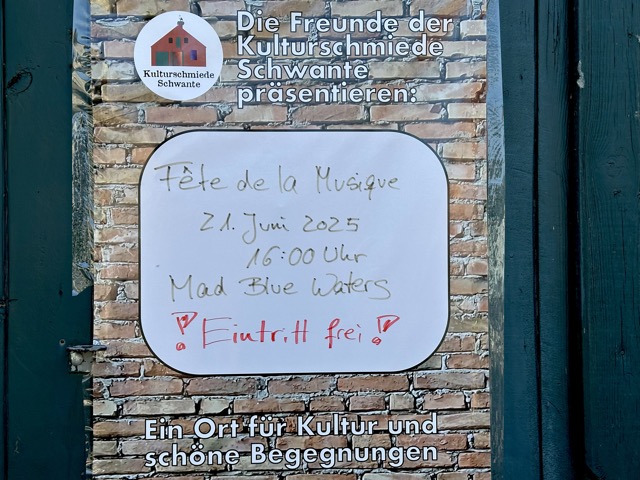 Kulturschmiede
Schwante
Die Freunde der
Kulturschmiede
Schwante
präsentieren:
Fête de la Musique
21. Juni 2025
16:00 Uhr
Mad Blue Waters
! Eintritt frei !
Ein Ort für Kultur und
schöne Begegnungen